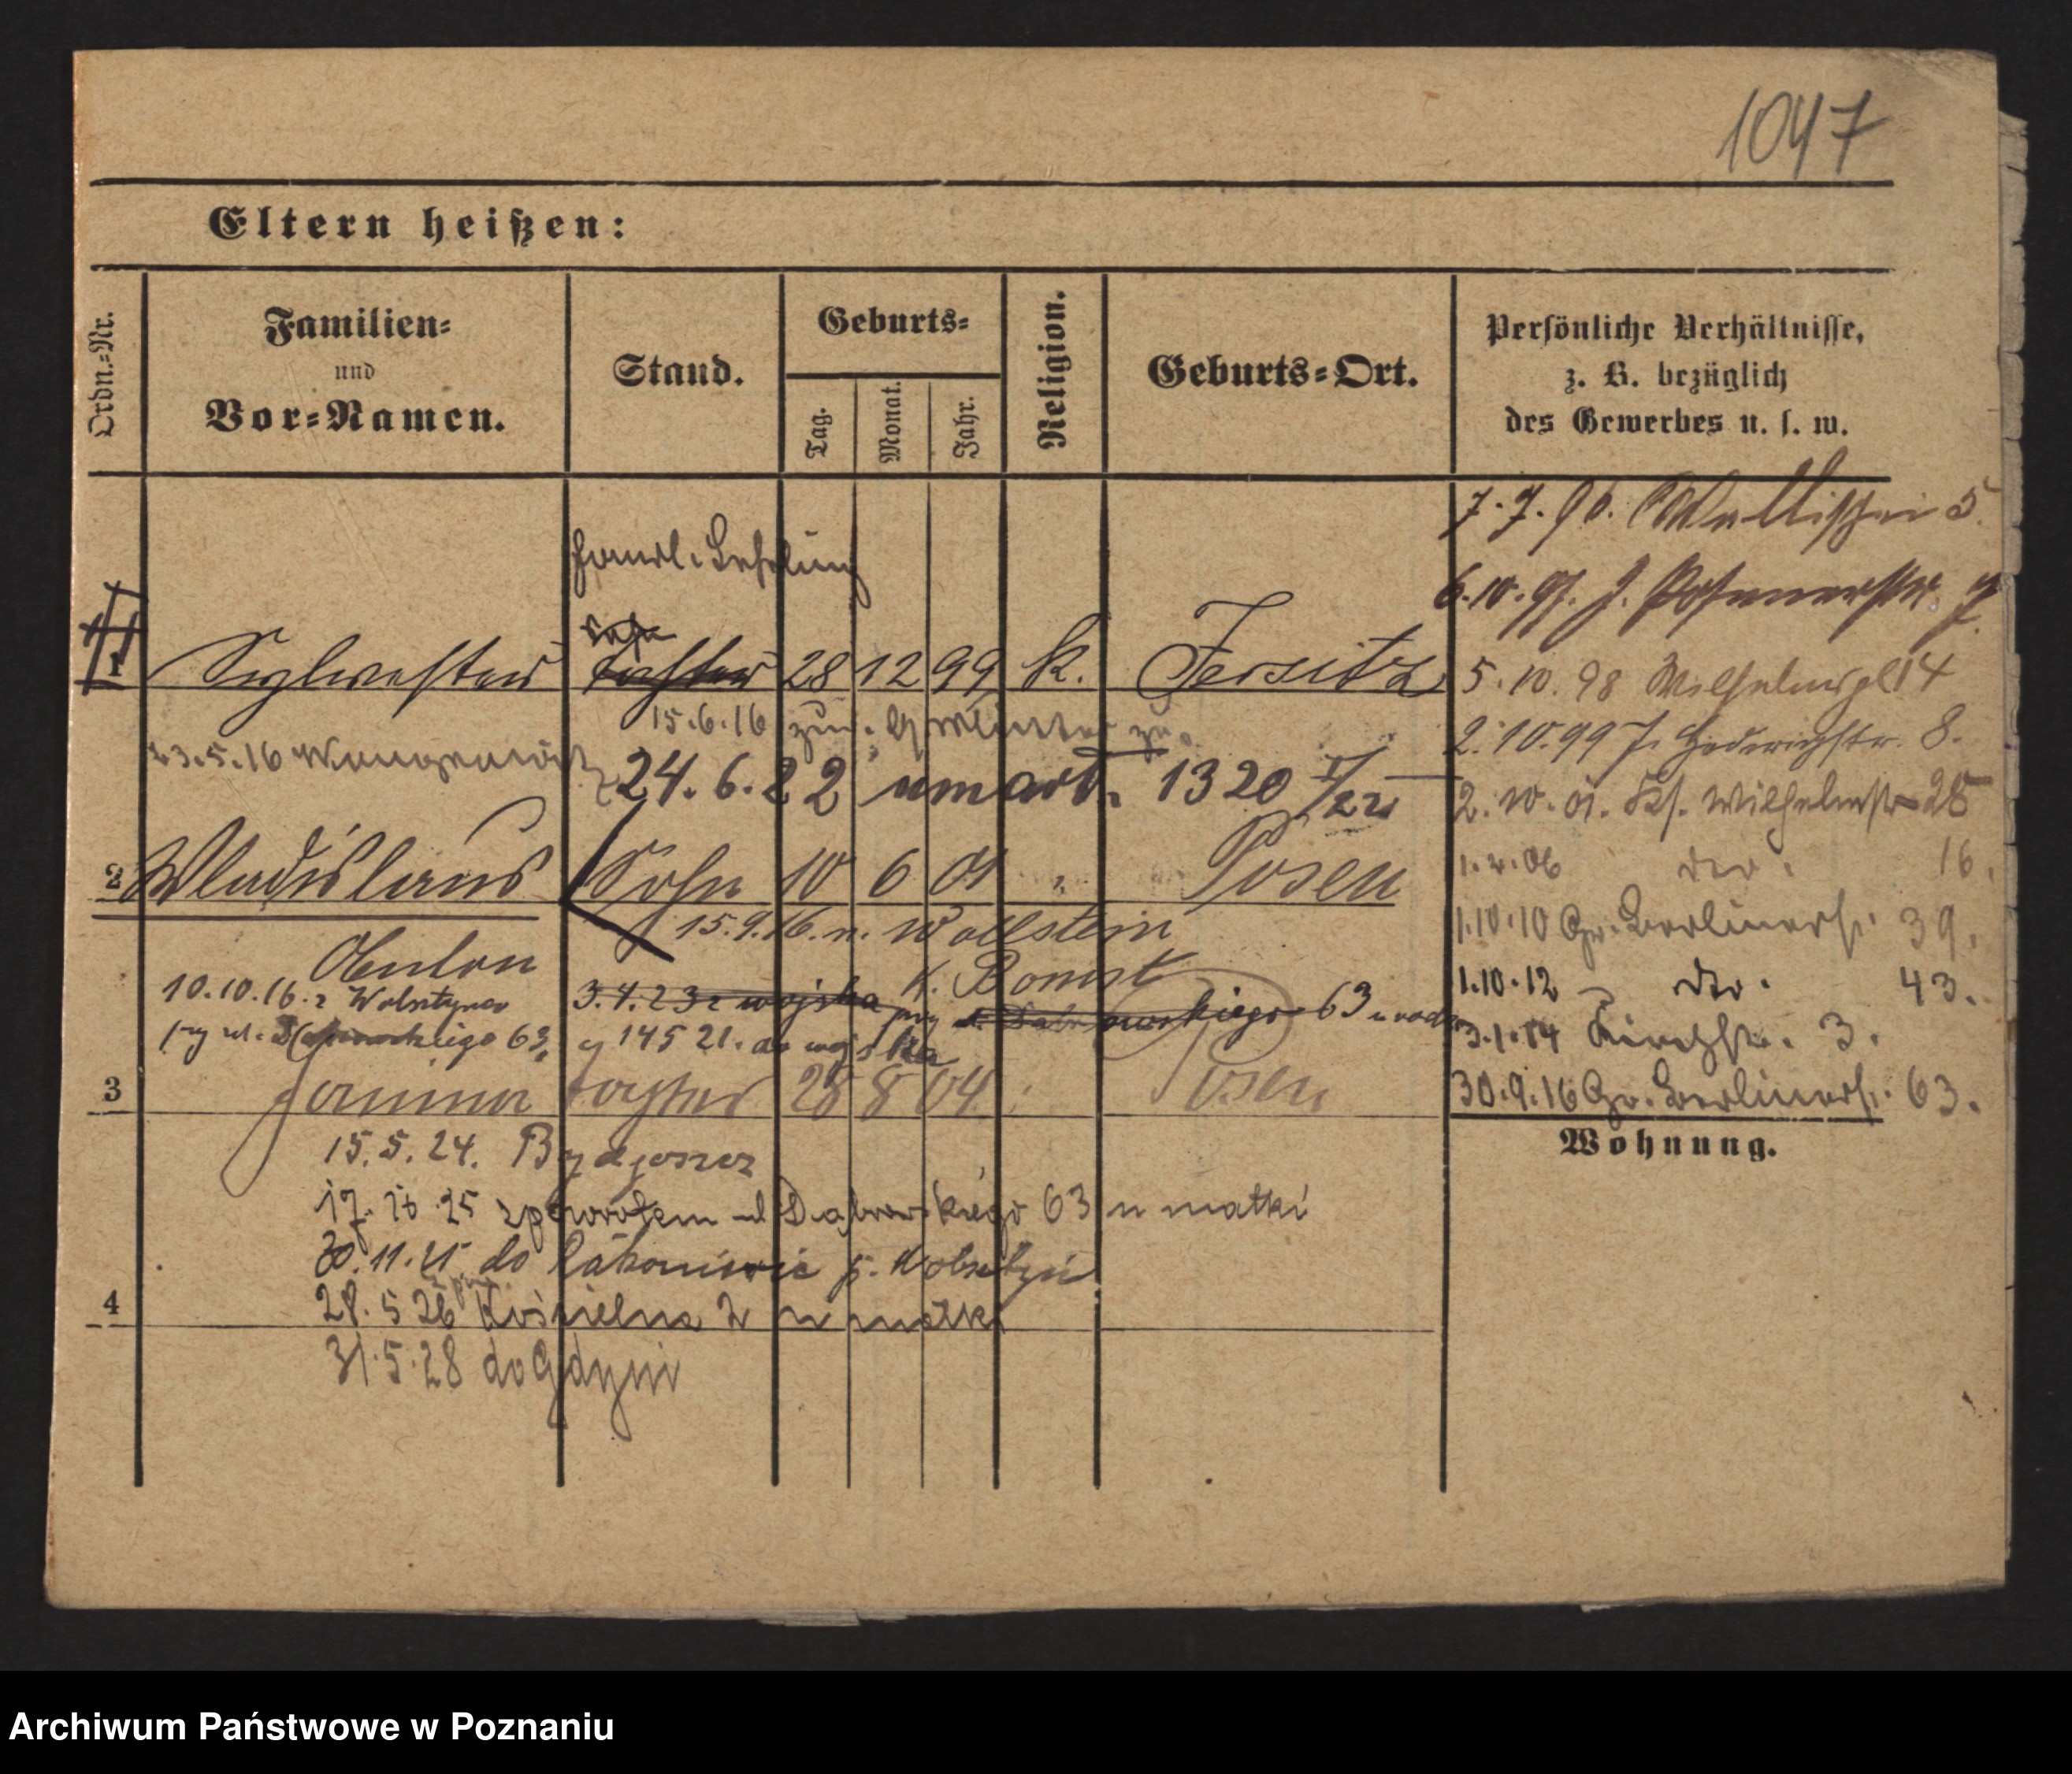 1047
Eltern heißen:
Ordn.=Nr.
Familien=
und
Vor=Namen.
Stand.
Geburts=
Tag.
Monat.
Jahr.
Religion.
Geburts=Ort.
Persönliche Verhältnisse,
z. B. bezüglich
des Gewerbes u. s. w.
7.7.96. Wallischei 5.
6.10.97. J. Posenerstr. 7.
5.10.98 Wilhelmspl 14
2.10.99 J. Hedwigstr. 8.
2.10.01. Kl. Wilhelmstr 28
1.4.06 dto. 16.
1.10.10 Gr. Berlinerstr. 39.
1.10.12 dto. 43.
3.1.14 Kirchstr. 3.
30.9.16 Gr. Berlinerstr. 63.
Wohnung.
Sohn
1 Sylwester Tochter 28 12 99 K. Jersitz
15.6.16
23.5.16 Wongrowitz
24.6.22 umarł. 1320 /22
2 Wladislaus Sohn 10 6 01 Posen
15.9.16. n. Wollstein
K. Bomst
10.10.16. z Wolsztyna 3.4.23 z wojska 63
63. 14 5 21. do wojska
3 Janina Tochter 28 8 04 Posen
15.5.24. Bydgoszcz
25 zpowrotem ul Dąbrowskiego 63 u matki
30.11.25 do Rakoniewic p. Wolsztyn
4
28.5 26 Kościelna u matki
31.5.28 do Gdyni
Archiwum Państwowe w Poznaniu